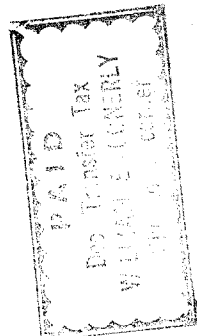 PAID
Doc Transfer Tax
WILLIAM E. CONERLY